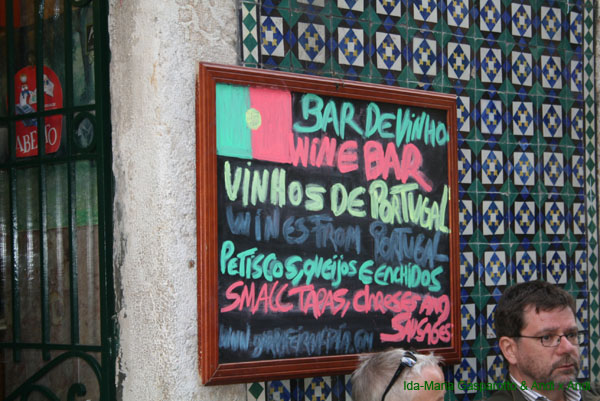 ABERTO
BAR DE VINHO
WINE BAR
VINHOS DE PORTUGAL
WINES FROM PORTUGAL
PETISCOS, QUEIJOS E ENCHIDOS
SMALL TAPAS, CHEESES AND
SAUSAGES
Ida-Maria